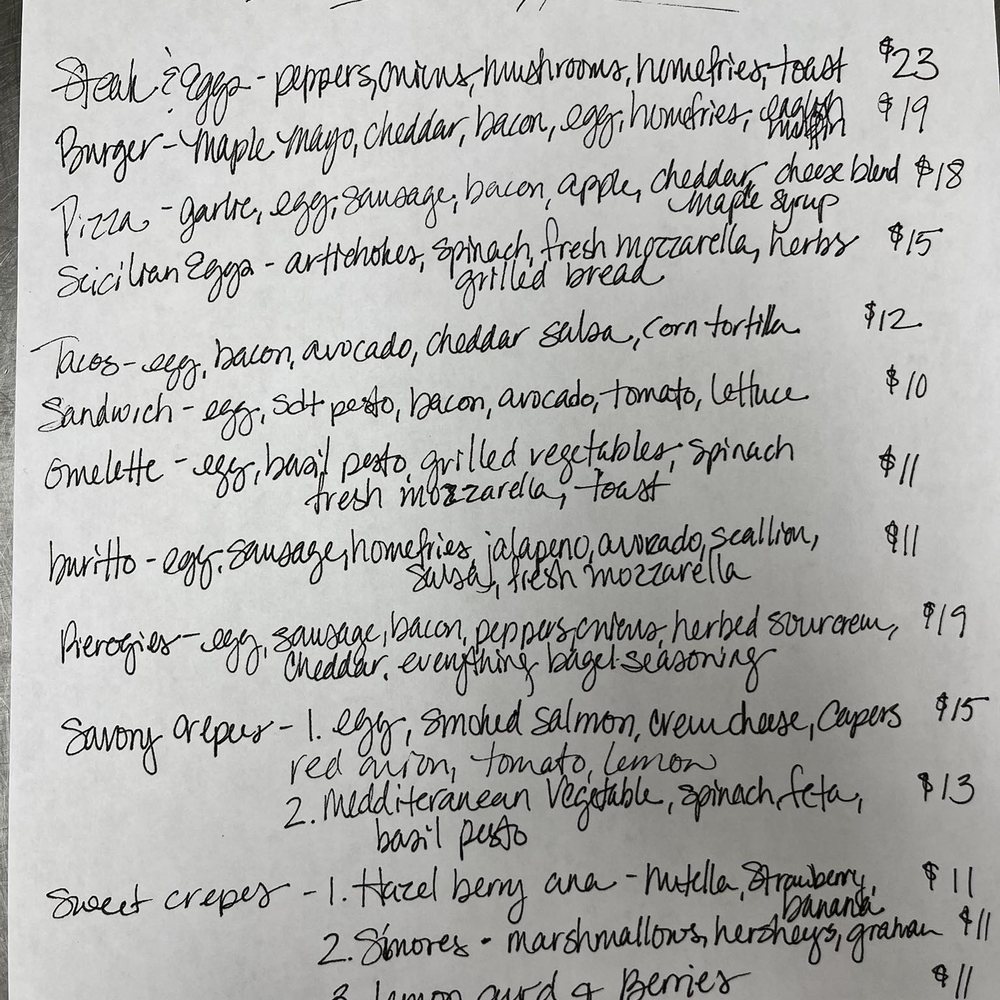 Steak & Eggs - peppers, onions, mushrooms, homefries, toast $23
Burger - maple mayo, cheddar, bacon, egg, homefries, english $19
muffin
Pizza - garlic, egg, sausage, bacon, apple, cheddar, cheese blend $18
maple syrup
Scicilian Eggs - artichokes, spinach, fresh mozzarella, herbs $15
grilled bread
Tacos - egg, bacon, avocado, cheddar salsa, corn tortilla $12
Sandwich - egg, sdt pesto, bacon, avocado, tomato, lettuce $10
Omelette - egg, basil pesto, grilled vegetables, spinach $11
fresh mozzarella, toast
buritto - egg, sausage, homefries, jalapeno, avocado, scallion, $11
salsa, fresh mozzarella
Pierogies - egg, sausage, bacon, peppers, onions, herbed sourcream, $19
cheddar, everything bagel seasoning
Savory crepes - 1. egg, smoked salmon, cream cheese, capers $15
red onion, tomato, lemon
2. Medditeranean Vegetable, spinach, feta, $13
basil pesto
Sweet crepes - 1. Hazel berry ana - nutella, strawberry, $11
banana
2. S'mores - marshmallows, hersheys, graham $11
3. lemon curd & Berries $11